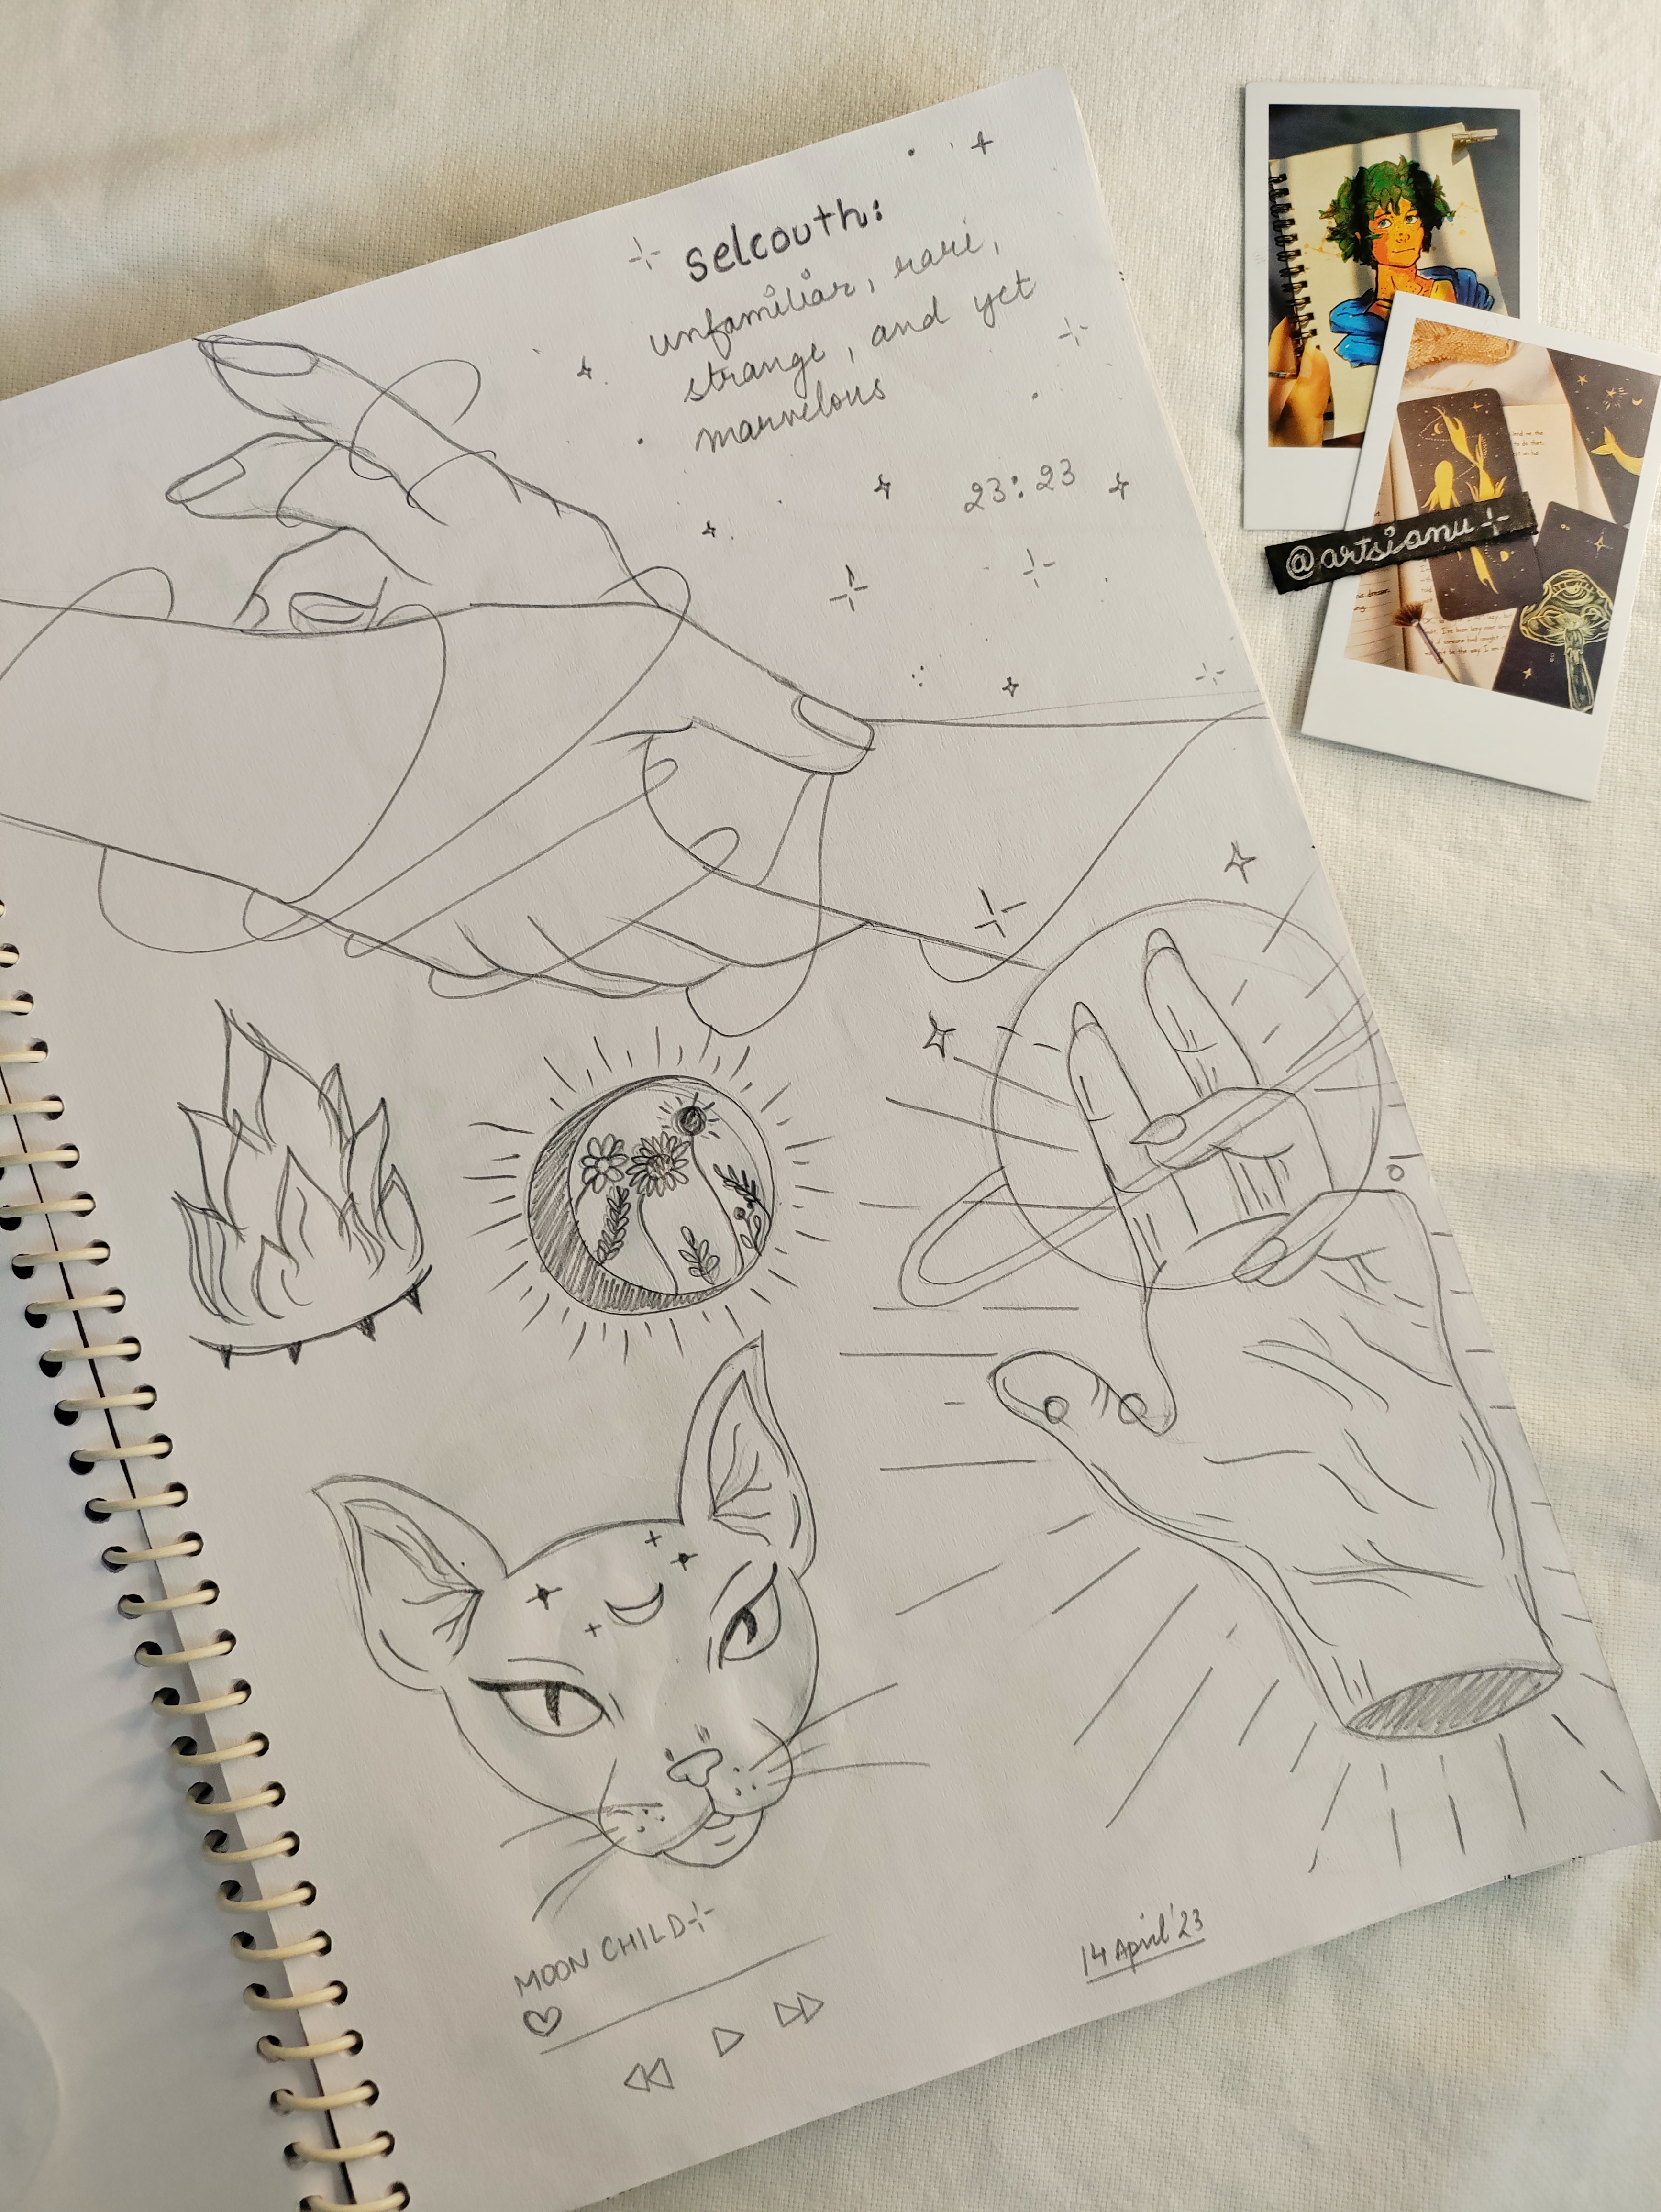 selcouth:
unfamiliar, rare,
strange, and yet
marvelous
23:23
@artsianu
MOON CHILD
14 April '23